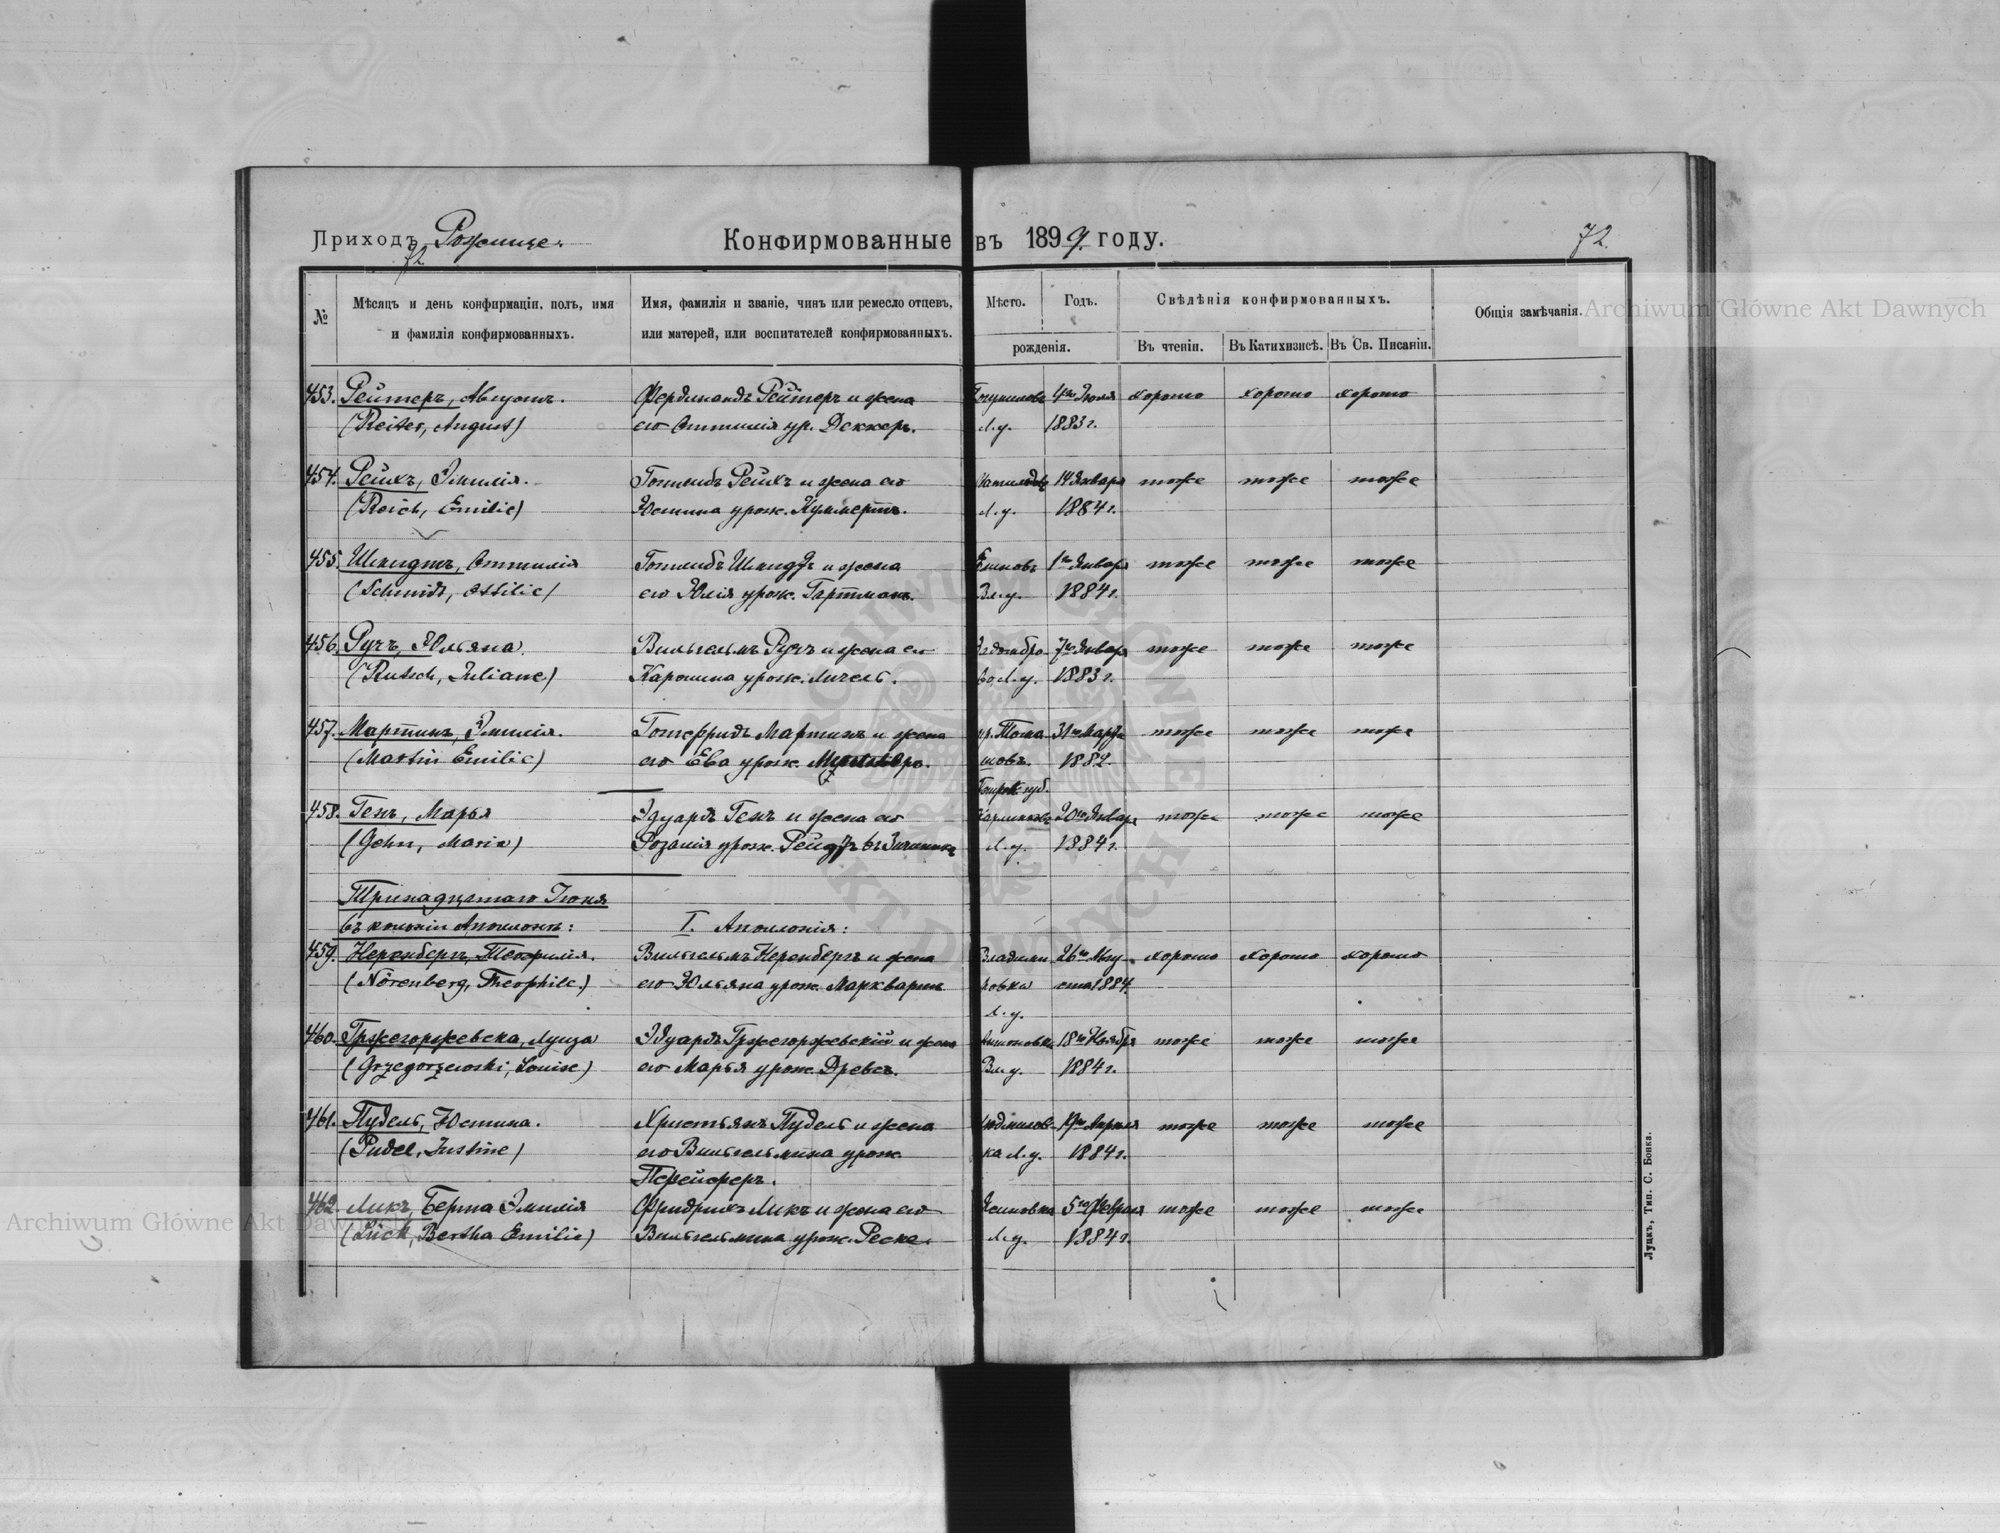 Приходъ Рожище.
72
Конфирмованные въ 1899. году.
72.
№
Мѣсяцъ и день конфирмаціи, полъ, имя
и фамилія конфирмованныхъ.
Имя, фамилія и званіе, чинъ или ремесло отцевъ,
или матерей, или воспитателей конфирмованныхъ.
Мѣсто.
Годъ.
рожденія.
Свѣдѣнія конфирмованныхъ.
Въ чтеніи.
Въ Катихизисѣ.
Въ Св. Писаніи.
Общія замѣчанія.
Archiwum Główne Akt Dawnych
453. Рейтеръ, Августъ. Фердинандъ Рейтеръ и жена 4го Іюля хорошо хорошо хорошо
(Reiter, August) его Оттилія ур. Деккеръ. Л.у. 1883 г.
454. Рейхъ, Эмилія. Готлибъ Рейхъ и жена его 14 Января тоже тоже тоже
(Reich, Emilie) Юстина урож. Куммертъ. Л.у. 1884 г.
455. Шмидтъ, Оттилія Готлибъ Шмидтъ и жена 1го Января тоже тоже тоже
(Schmidt, Ottilie) его Юлія урож. Гартманъ. Вл.у. 1884 г.
456. Ручъ, Юльяна. Вильгельмъ Ручъ и жена его 7го Января тоже тоже тоже
(Rutsch, Juliane) Каролина урож. Л.у. 1883 г.
457. Мартинъ, Эмилія. Готфридъ Мартинъ и жена гр. Тома 31го Марта тоже тоже тоже
(Martin Emilie) его Ева урож. шовъ. 1882.
Петрок. губ.
458. Генъ, Марья Эдуардъ Генъ и жена его 20го Января тоже тоже тоже
(Gehn, Maria) Розалія урож. Л.у. 1884 г.
Тринадцатаго Іюня
въ колоніи Аполлонія: I. Аполлонія:
459. Неренбергъ, Теофилія. Вильгельмъ Неренбергъ и жена Владими 26го Авгу- хорошо хорошо хорошо
(Nörenberg, Theophile.) его Юльяна урож. Марквартъ ровка ста 1884.
Л.у.
460. Гржегоржевска, Луиза Эдуардъ Гржегоржевскій и жена Антоновка 18го Ноября тоже тоже тоже
(Grzegorzewski, Louise) его Марья урож. Древсъ. Вл.у. 1884 г.
461. Пудель, Юстина. Христьянъ Пудель и жена Людмилов- Апрѣля тоже тоже тоже
(Pudel, Justine) его Вильгельмина урож. ка Л.у. 1884 г.
462. Ликъ, Берта Эмилія Фридрихъ Ликъ и жена его 5го Февраля тоже тоже тоже
(Lück, Bertha Emilie) Вильгельмина урож. Реске. Л.у. 1884 г.
Archiwum Główne Akt Dawnych
Луцкъ, Тип. С. Бонка.